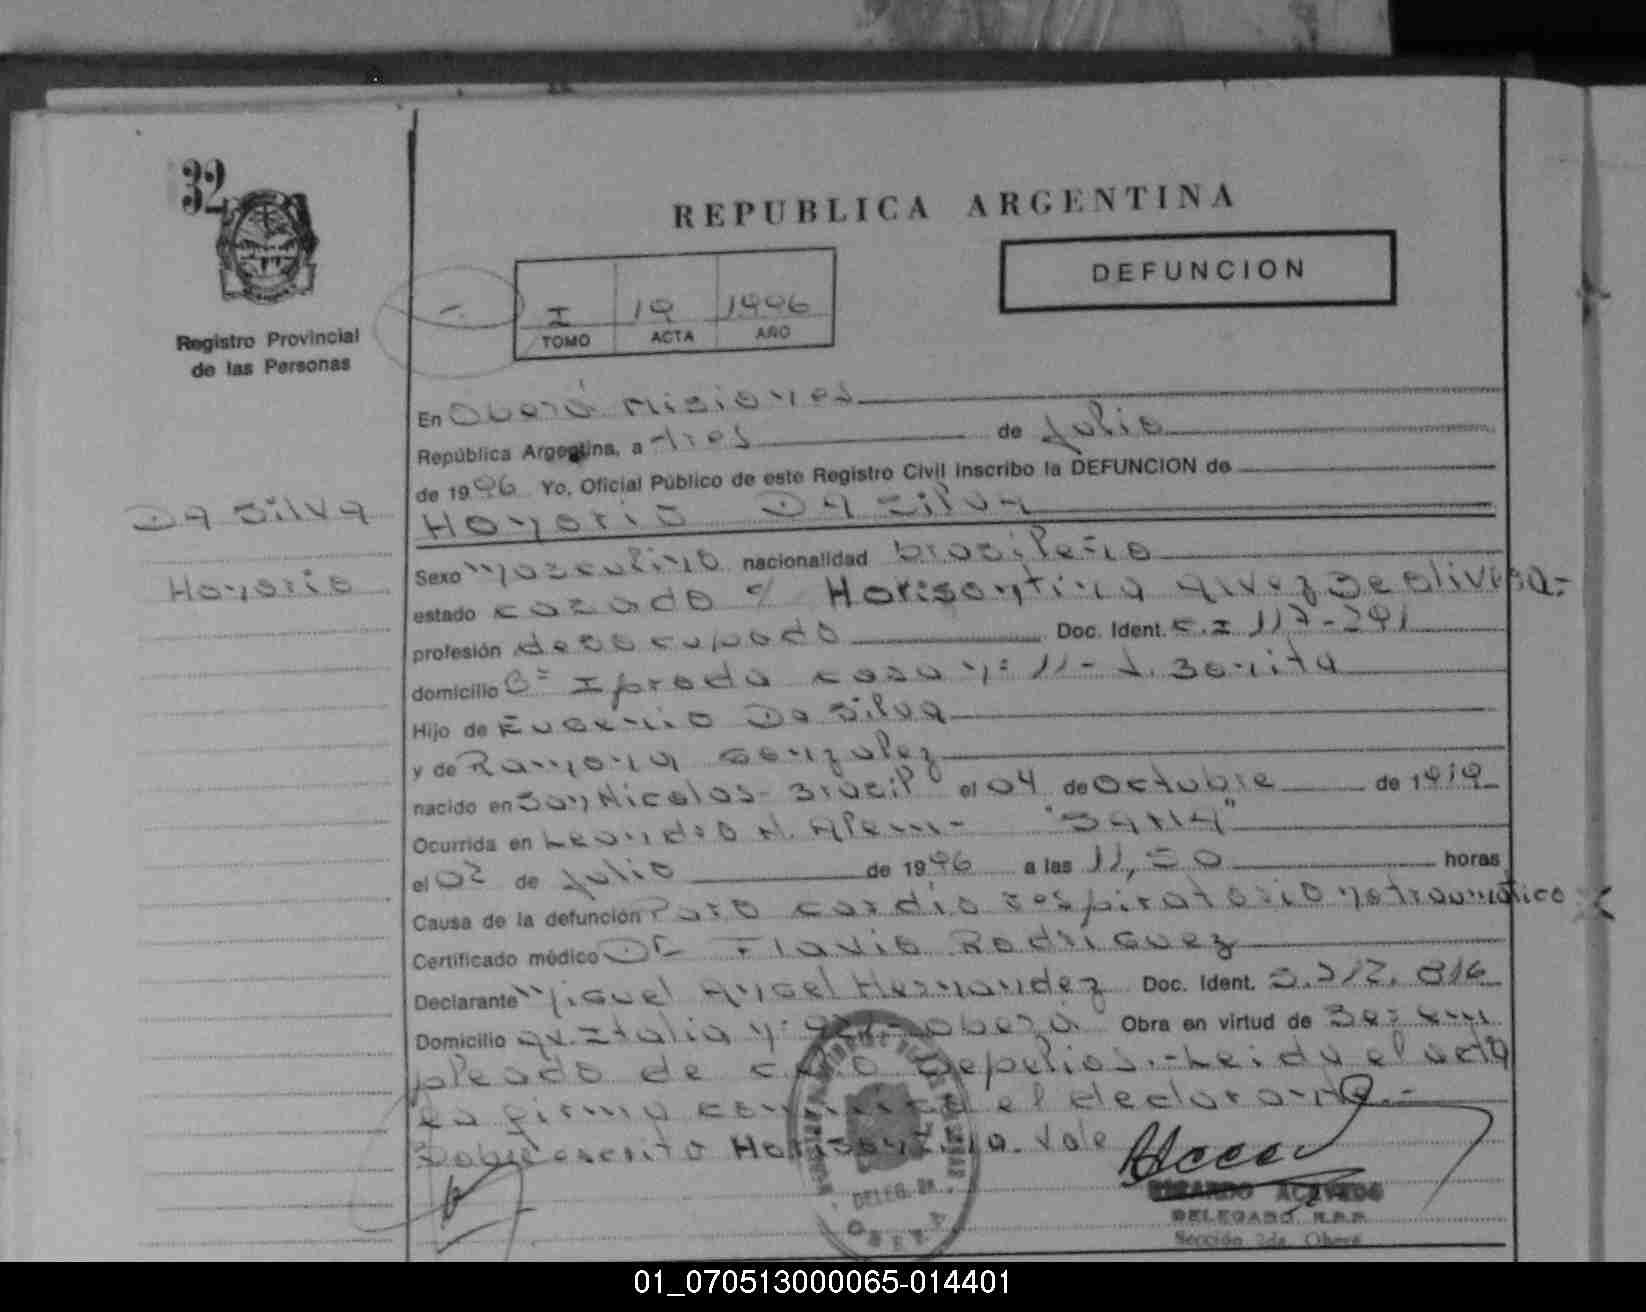 32
REPUBLICA ARGENTINA
DEFUNCION
I 19 1996
TOMO ACTA AÑO
Registro Provincial
de las Personas
En Oberá Misiones
República Argentina, a tres de Julio
de 1996 Yo, Oficial Público de este Registro Civil inscribo la DEFUNCION de
Da Silva
Honorio Da Silva
Honorio
Sexo masculino nacionalidad brasileño
estado casado c/ Horisontina Alvez de Olivera.-
profesión desocupado Doc. Ident. C.I 117-291
domicilio Bº Iprodha casa nº 11- Bonita
Hijo de Eugenio Da Silva
y de Ramona Gonzalez
nacido en San Nicolas- Brasil el 04 de Octubre de 1919
Ocurrida en Leandro N. Alem-
el 02 de Julio de 1996 a las horas
Causa de la defunción Paro cardio respiratorio no traumático
Certificado médico Dr Flavio Rodriguez
Declarante Miguel Angel Hernandez Doc. Ident.
Domicilio Av. Italia nº Oberá Obra en virtud de Ser em
pleado de Sepelios.- Leida el acta
la firma conmigo el declarante.-
Sobreescrito Horisontina. Vale
DELEG. 2a.
OBERA
RICARDO ACEVEDO
DELEGADO R.P.P.
Sección 2da. Oberá
01_070513000065-014401